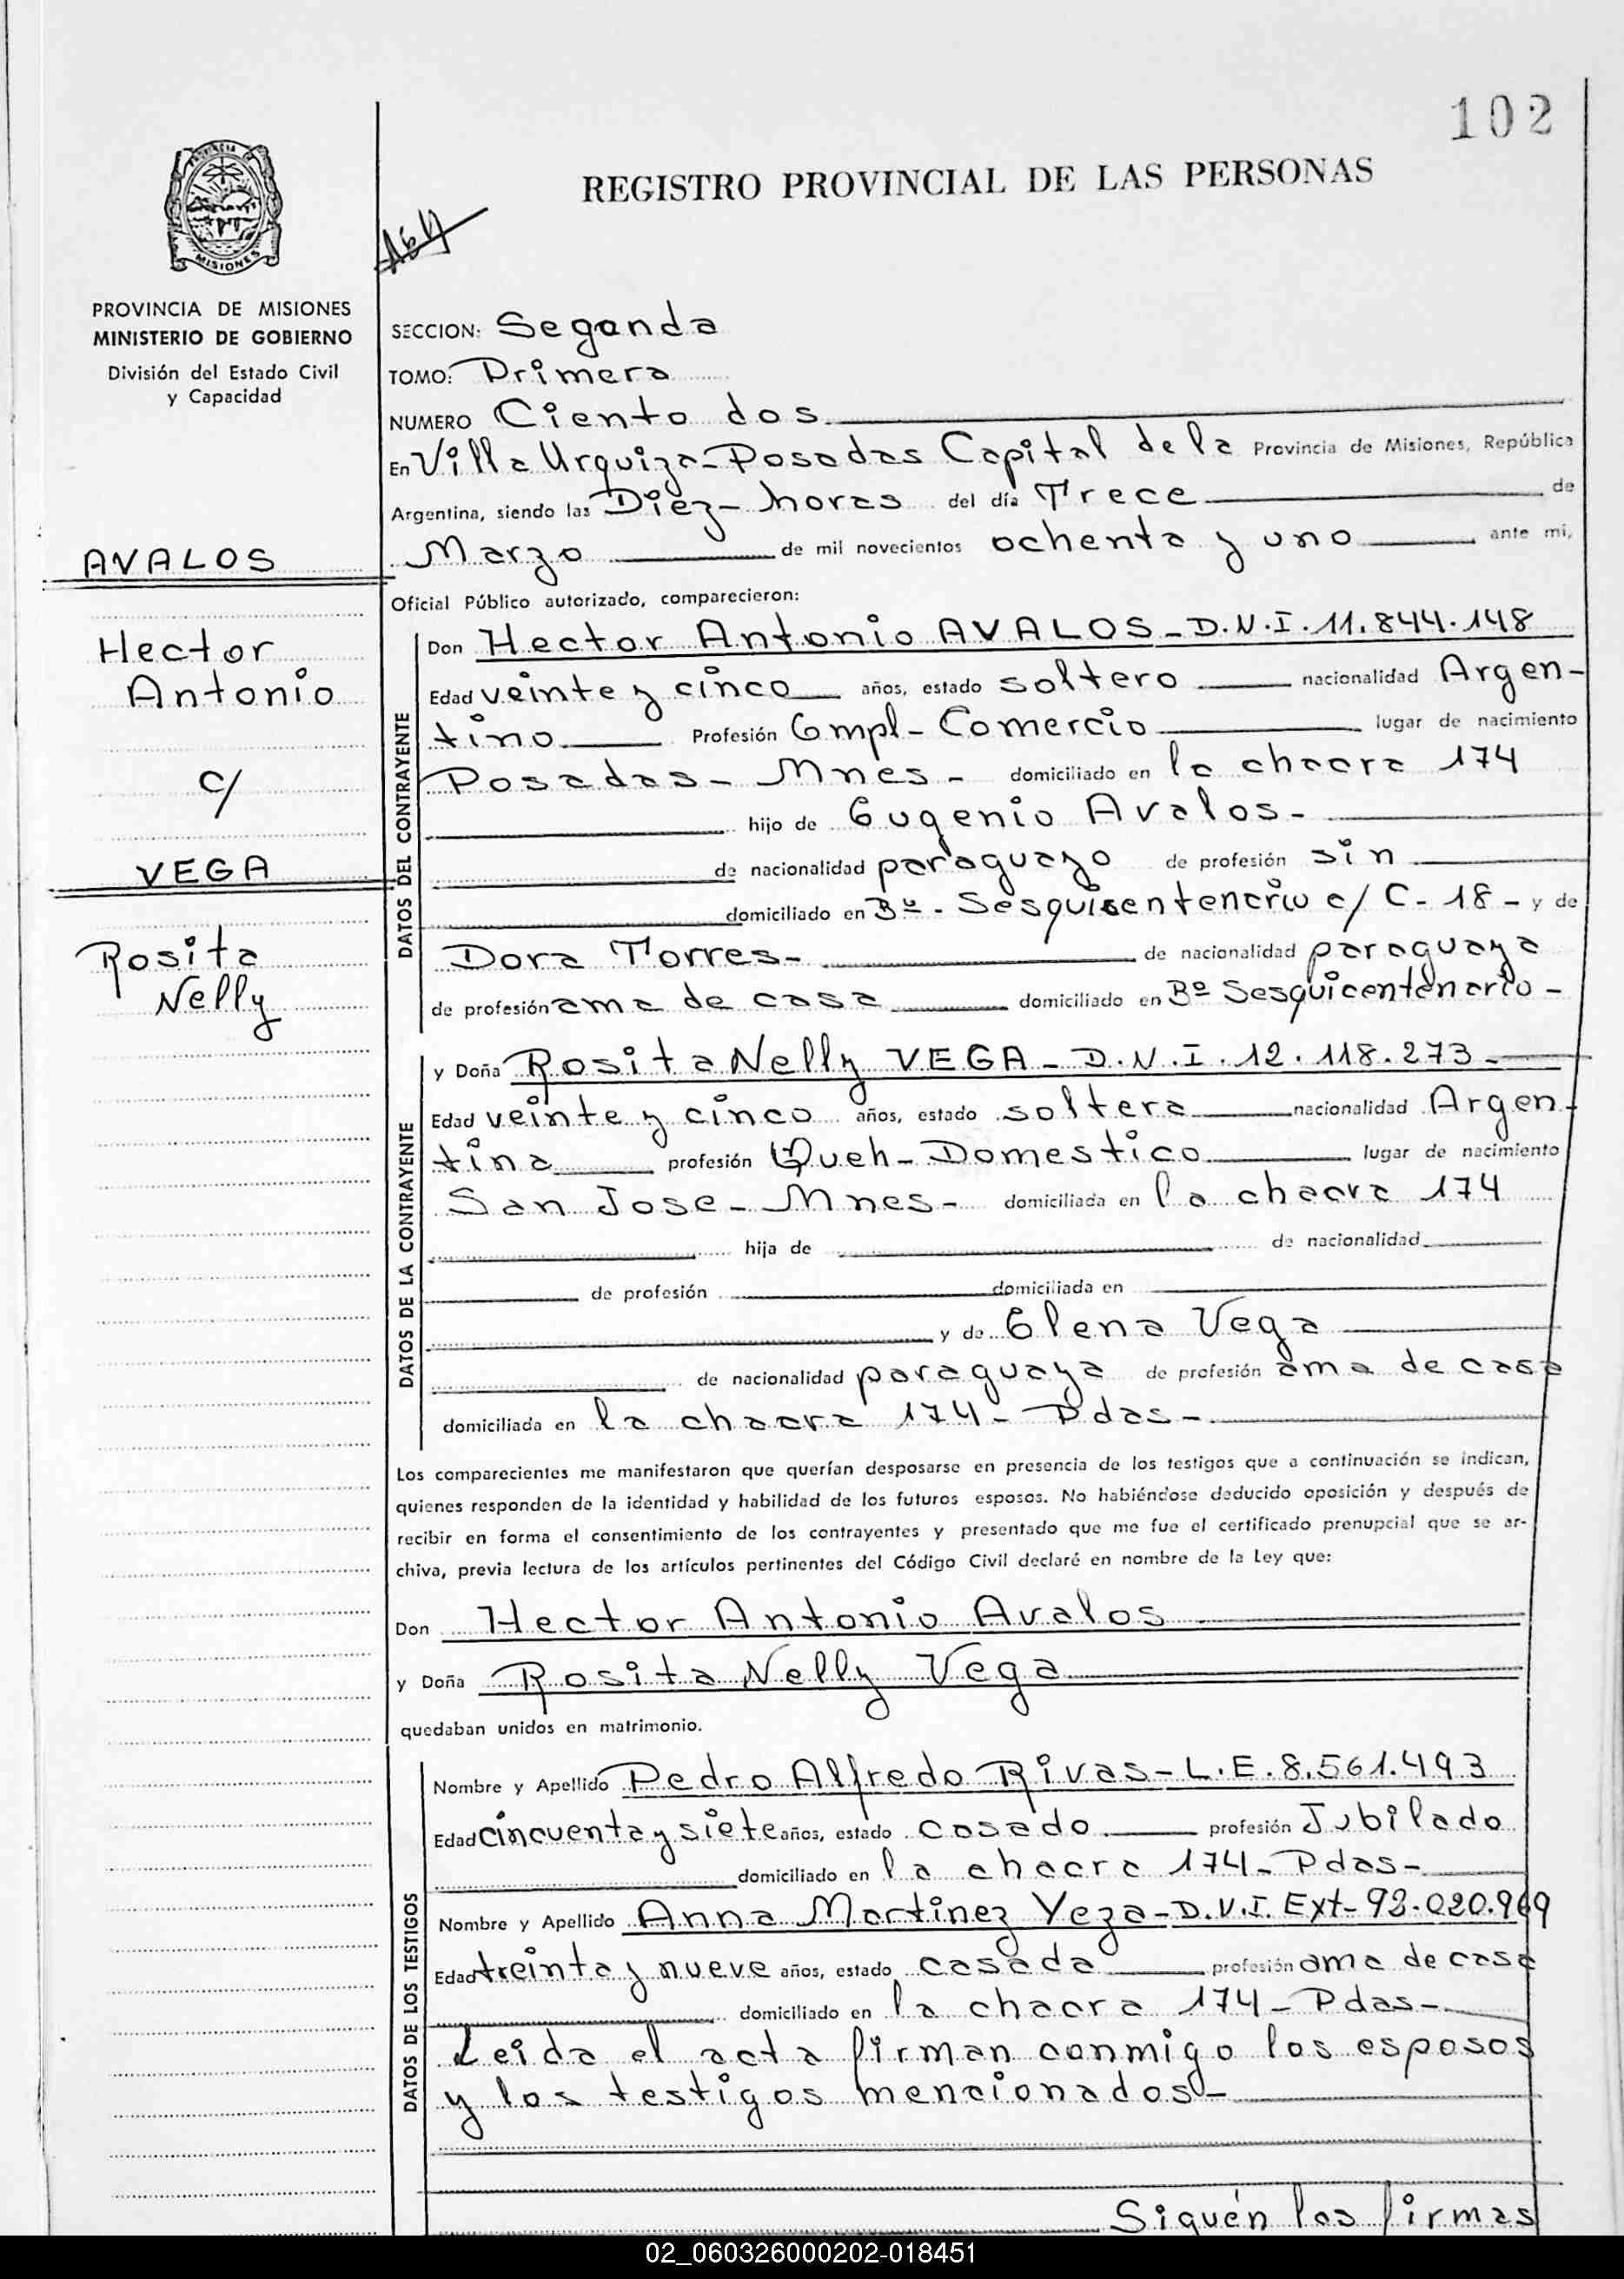 102
REGISTRO PROVINCIAL DE LAS PERSONAS
PROVINCIA DE
MISIONES
PROVINCIA DE MISIONES
MINISTERIO DE GOBIERNO
División del Estado Civil
y Capacidad
AVALOS
Hector
Antonio
c/
VEGA
Rosita
Nelly
SECCION: Segunda
TOMO: Primera
NUMERO Ciento dos
En Villa Urquiza - Posadas Capital de la Provincia de Misiones, República
Argentina, siendo las Diez - horas del día Trece de
Marzo de mil novecientos ochenta y uno ante mi,
Oficial Público autorizado, comparecieron:
DATOS DEL CONTRAYENTE
Don Hector Antonio AVALOS - D.N.I. 11.844.148
Edad veinte y cinco años, estado soltero nacionalidad Argen-
tino Profesión Empl - Comercio lugar de nacimiento
Posadas - Mnes - domiciliado en la chacra 174
hijo de Eugenio Avalos -
de nacionalidad paraguayo de profesión sin
domiciliado en Bº - Sesquicentenario c/ C - 18 - y de
Dora Torres - de nacionalidad paraguaya
de profesión ama de casa domiciliado en Bº Sesquicentenario -
DATOS DE LA CONTRAYENTE
y Doña Rosita Nelly VEGA - D.N.I. 12.118.273 -
Edad veinte y cinco años, estado soltera nacionalidad Argen-
tina profesión Queh - Domestico lugar de nacimiento
San Jose - Mnes - domiciliada en la chacra 174
hija de de nacionalidad
de profesión domiciliada en
y de Elena Vega
de nacionalidad paraguaya de profesión ama de casa
domiciliada en la chacra 174 - Pdas -
Los comparecientes me manifestaron que querían desposarse en presencia de los testigos que a continuación se indican,
quienes responden de la identidad y habilidad de los futuros esposos. No habiéndose deducido oposición y después de
recibir en forma el consentimiento de los contrayentes y presentado que me fue el certificado prenupcial que se ar-
chiva, previa lectura de los artículos pertinentes del Código Civil declaré en nombre de la Ley que:
Don Hector Antonio Avalos
y Doña Rosita Nelly Vega
quedaban unidos en matrimonio.
DATOS DE LOS TESTIGOS
Nombre y Apellido Pedro Alfredo Rivas - L.E. 8.561.493
Edad cincuenta y siete años, estado casado profesión Jubilado
domiciliado en la chacra 174 - Pdas -
Nombre y Apellido Anna Martinez Yeza - D.N.I. Ext - 92.020.969
Edad treinta y nueve años, estado casada profesión ama de casa
domiciliado en la chacra 174 - Pdas -
Leida el acta firman conmigo los esposos
y los testigos mencionados -
Siguén las firmas
02_060326000202-018451